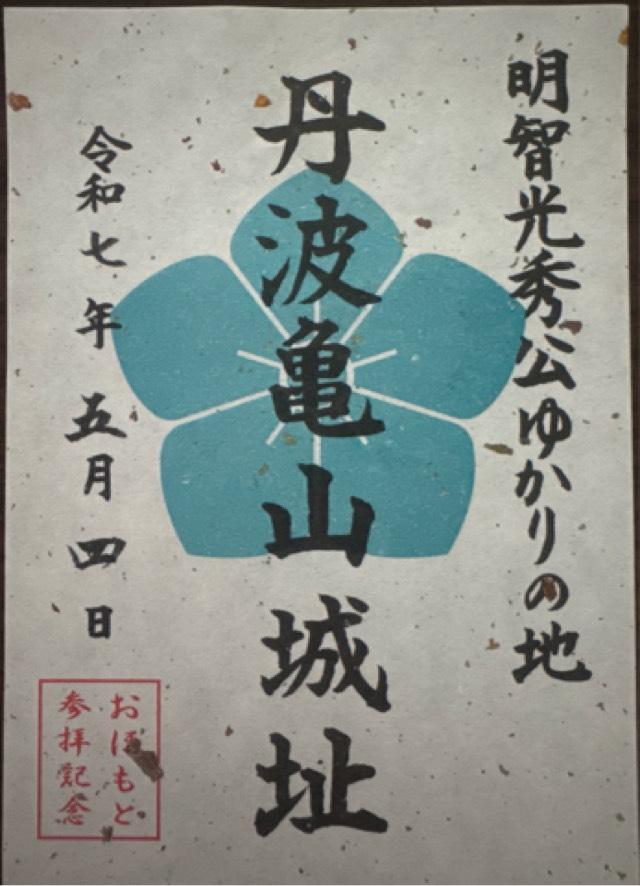 明智光秀公ゆかりの地
丹波亀山城址
令和七年五月四日
おほもと
参拝記念